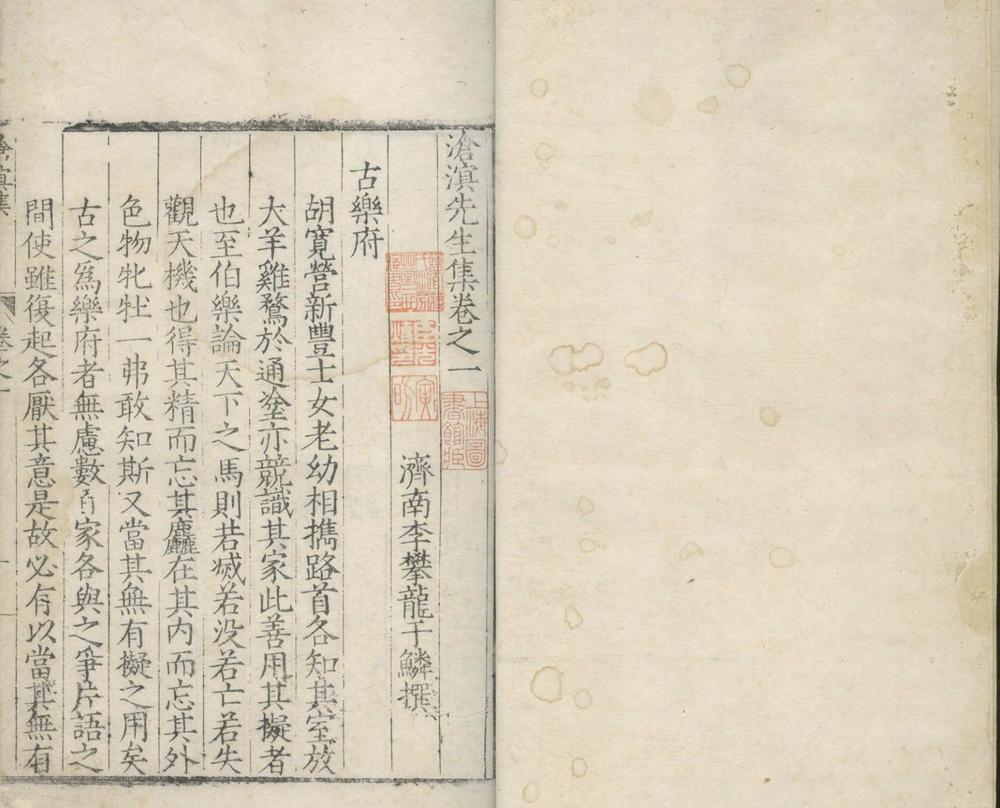 滄溟先生集卷之一
濟南李攀龍于鱗撰
古樂府
胡寬營新豐士女老幼相攜路首各知其室放
犬羊雞鶩於通塗亦競識其家此善用其擬者
也至伯樂論天下之馬則若滅若没若亡若失
觀天機也得其精而忘其麤在其内而忘其外
色物牝牡一弗敢知斯又當其無有擬之用矣
古之爲樂府者無慮數百家各與之爭片語之
間使雖復起各厭其意是故必有以當其無有
滄溟集
卷之一
上海圖書館藏